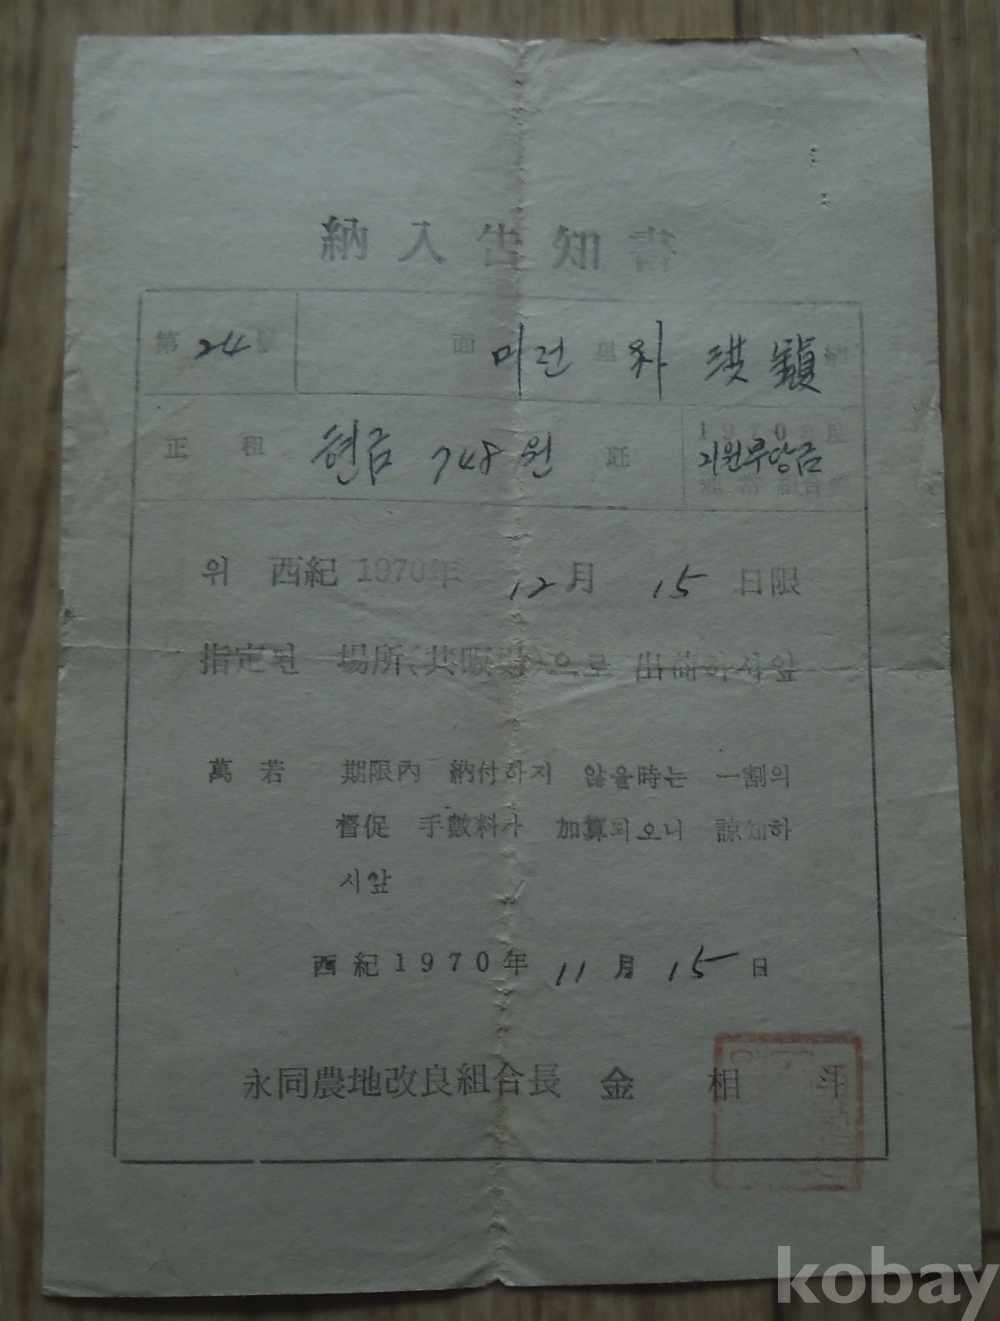 納入告知書
第 24 號 面 미전 里 차 琪鎭 納
正租 현금 748원 瓩 1970年度
지원부담금
通常組合費
위 西紀 1970年 12月 15日限
指定된 場所(共販場)으로 出荷하시앞
萬若 期限內 納付하지 않을時는 一割의
督促 手數料가 加算되오니 諒知하
시앞
西紀1970年 11月 15日
永同農地改良組合長 金相斗
kobay